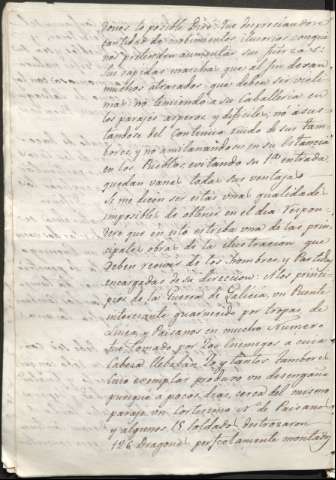 donos lo posible. Dirá: Que despreciando el
cantidad de movimientos ilusorios conque
no pretenden aumentar su fuerza: a
sus rapidas marchas que al fin dejan
muchos atrasados que deben ser victi
mas: no temiendo a su Caballeria en
los parajes asperos y dificiles, no asus
tandose del Continuo ruido de sus Tam
bores, y no amilanandose en su Estancia
en los Pueblos evitando su 1ª entrada
quedan vanas todas sus ventajas.
Si me dicen ser estas unas qualidades
imposibles de obtener en el dia respon
deré que en esto estriva una de las prin
cipales obras de la ilustracion que
deben recivir de los hombres y Partidos
encargados de su direccion: A los princi
pios de la Guerra de Galicia, un Puente
interesante guarnecido por tropas de
Linea y Paisanos en mucho Numero
fue forzado por los Enemigos a cuia
cabeza llebaban 20 y tantos tambores
caro exemplar produjo un desengaño
porque a pocos dias, cerca del mismo
paraje un cortisimo nº de Paisanos
y algunos 15 Soldados destrozaron
126 Dragones perfectamente montados